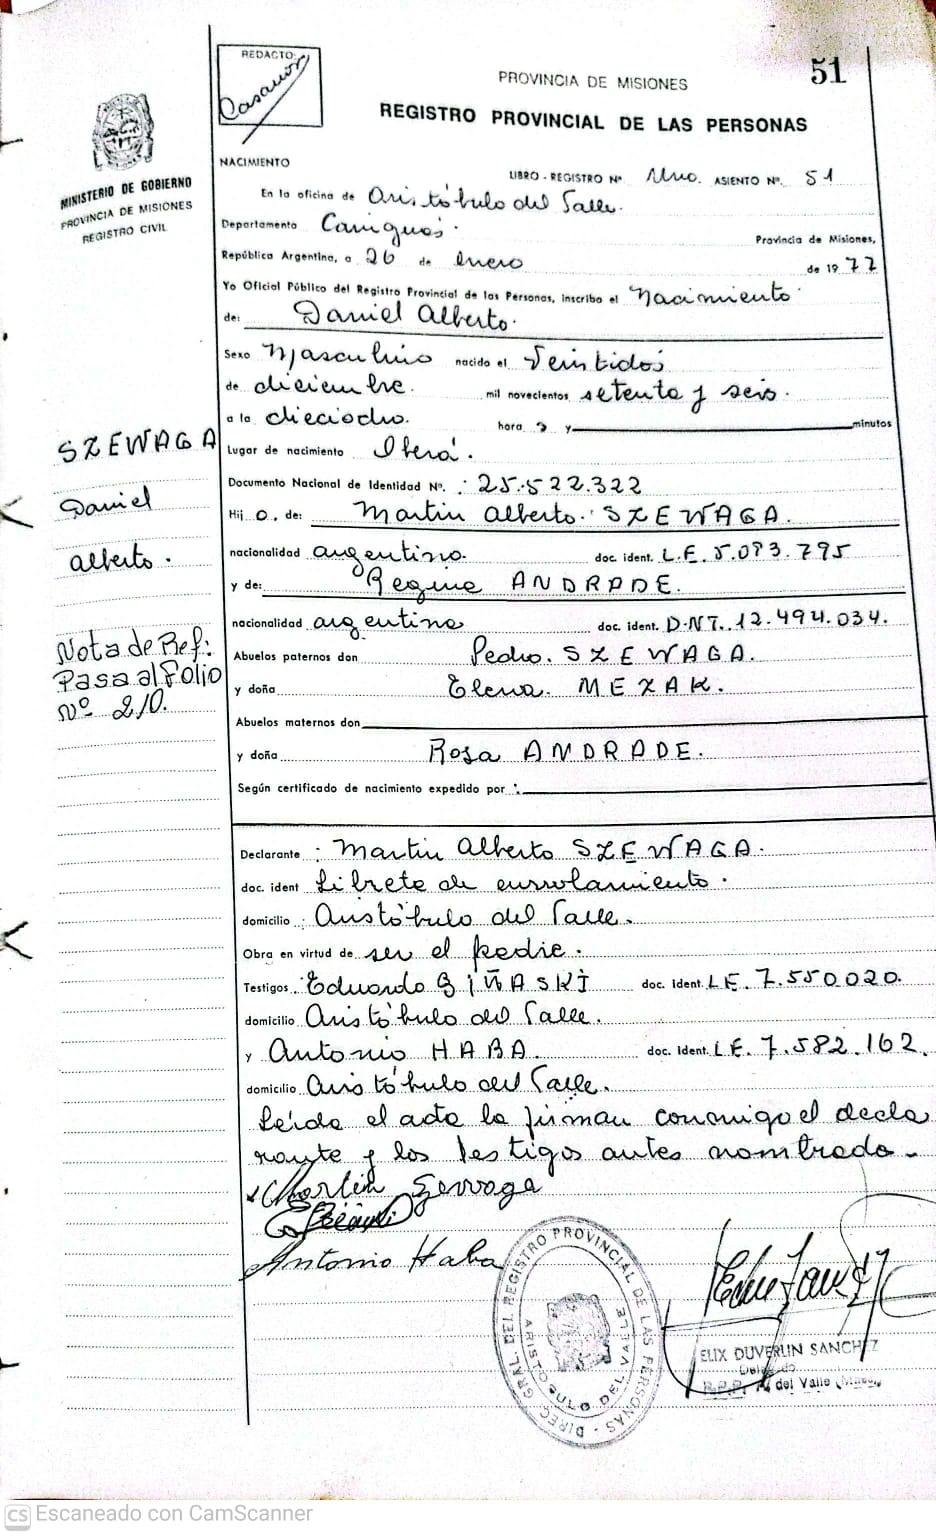 REDACTO:
Casanov
51
PROVINCIA DE MISIONES
REGISTRO PROVINCIAL DE LAS PERSONAS
MINISTERIO DE GOBIERNO
PROVINCIA DE MISIONES
REGISTRO CIVIL
NACIMIENTO
LIBRO - REGISTRO Nº Uno. ASIENTO Nº. 51
En la oficina de Aristóbulo del Valle.
Departamento Cainguás.
Provincia de Misiones,
República Argentina, a 26 de Enero de 1977
Yo Oficial Público del Registro Provincial de las Personas, inscribo el Nacimiento
de: Daniel Alberto.
Sexo Masculino nacido el Veintidós
de diciembre. mil novecientos setenta y seis.
a la dieciocho. hora s y minutos
Lugar de nacimiento Oberá.
Documento Nacional de Identidad Nº. : 25.522.322
Hij o. de: Martin Alberto. SZEWAGA.
nacionalidad argentino. doc. ident. L.E. 5.093.795
y de: Regina ANDRADE.
nacionalidad argentina doc. ident. D.N.I. 12.494.034.
Abuelos paternos don Pedro. SZEWAGA.
y doña Elena. MEZAK.
Abuelos maternos don
y doña Rosa ANDRADE.
Según certificado de nacimiento expedido por :
SZEWAGA
Daniel
Alberto.
Nota de Ref:
Pasa al Folio
Nº 210.
Declarante : Martin Alberto SZEWAGA.
doc. ident Libreta de enrrolamiento.
domicilio : Aristóbulo del Valle.
Obra en virtud de ser el padre.
Testigos. Eduardo BIÑASKI doc. ident. LE. 7.550.020.
domicilio Aristóbulo del Valle.
y Antonio HABA. doc. ident. LE. 7.582.162.
domicilio Aristóbulo del Valle.
Leída el acta la firman conmigo el decla
rante y los testigos antes nombrado.
Martin
Antonio Haba
DIREC. GRAL. DEL REGISTRO PROVINCIAL DE LAS PERSONAS
ARISTOBULO DEL VALLE
ELIX DUVERLIN SANCHEZ
Delegado
R.P.P. A. del Valle (Mnes.)
CS Escaneado con CamScanner